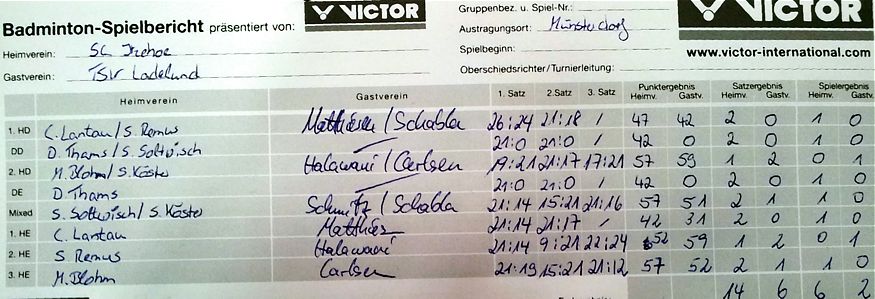 VICTOR
Gruppenbez. u. Spiel-Nr.:
VICTOR
Badminton-Spielbericht präsentiert von:
Austragungsort: Münsterdorf
Heimverein: SC Itzehoe
Spielbeginn:
www.victor-international.com
Gastverein: TSV Ladelund
Oberschiedsrichter/Turnierleitung:
Heimverein Gastverein 1. Satz 2. Satz 3. Satz Punktergebnis Heimv. Gastv. Satzergebnis Heimv. Gastv. Spielergebnis Heimv. Gastv.
1. HD C. Lantau/S. Remus Matthiesen/Schabla 26:24 21:18 / 47 42 2 0 1 0
DD D. Thams/S. Soltwisch 21:0 21:0 / 42 0 2 0 1 0
2. HD M. Blohm/S. Köster Halawani/Carlsen 19:21 21:17 17:21 57 59 1 2 0 1
DE D. Thams 21:0 21:0 / 42 0 2 0 1 0
Mixed S. Soltwisch/S. Köster Schmitz/Schabla 21:14 15:21 21:16 57 51 2 1 1 0
1. HE C. Lantau Matthies 21:14 21:17 / 42 31 2 0 1 0
2. HE S. Remus Halawani 21:14 9:21 22:24 52 59 1 2 0 1
3. HE M. Blohm Carlsen 21:19 15:21 21:12 57 52 2 1 1 0
14 6 6 2